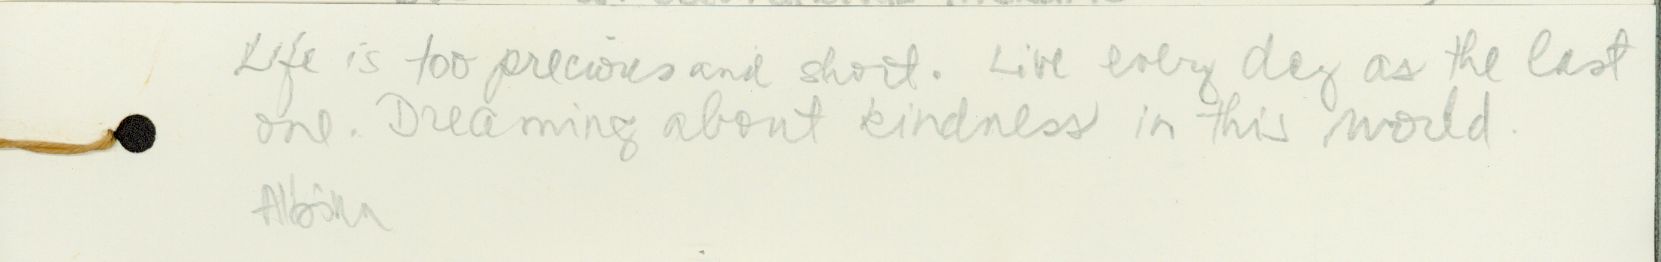 Life is too precious and short. Live every day as the last
one. Dreaming about kindness in this world.
Albina